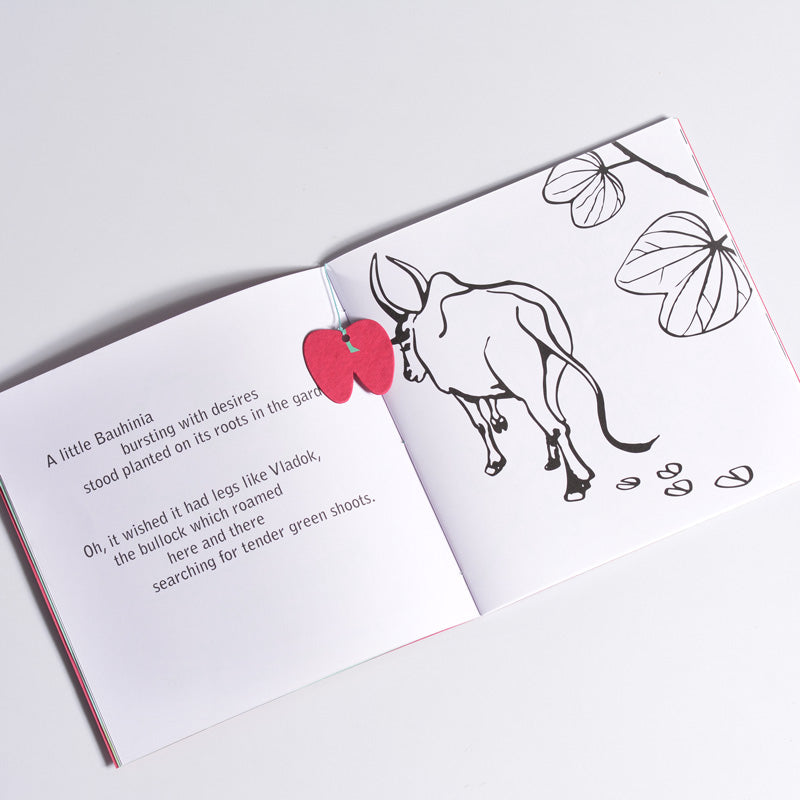 A little Bauhinia
bursting with desires
stood planted on its roots in the gard
Oh, it wished it had legs like Vladok,
the bullock which roamed
here and there
searching for tender green shoots.